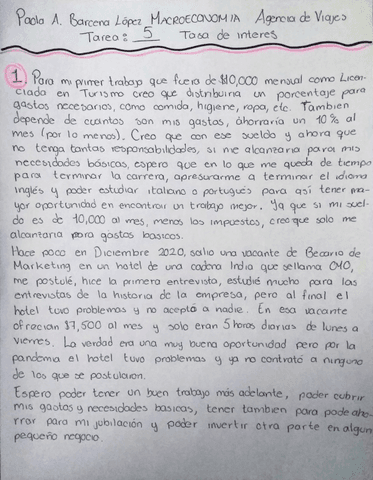 Paola A. Barcena López MACROECONOMIA Agencia de Viajes
Tarea: 5 Tasa de interes
1. Para mi primer trabajo que fuera de $10,000 mensual como Licen-
ciada en Turismo creo que distribuiria un porcentaje para
gastos necesarios, como comida, higiene, ropa, etc. Tambien
depende de cuantos son mis gastos, ahorraría un 10% al
mes (por lo menos). Creo que con ese sueldo y ahora que
no tenga tantas responsabilidades, si me alcanzaria para mis
necesidades básicas, espero que en lo que me queda de tiempo
para terminar la carrera, apresurarme a terminar el idioma
Inglés y poder estudiar italiano o portugués para así tener ma-
yor oportunidad en encontrar un trabajo mejor. Ya que si mi suel-
do es de 10,000 al mes, menos los impuestos, creo que solo me
alcanzaria para gastos basicos.
Hace poco en Diciembre 2020, salio una vacante de Becario de
Marketing en un hotel de una cadena India que se llama OYO,
me postulé, hice la primera entrevista, estudié mucho para las
entrevistas de la historia de la empresa, pero al final el
hotel tuvo problemas y no aceptó a nadie. En esa vacante
ofrecian $7,500 al mes y solo eran 5 horas diarias de lunes a
viernes. La verdad era una muy buena oportunidad pero por la
pandemia el hotel tuvo problemas y ya no contrató a ninguno
de los que se postularon.
Espero poder tener un buen trabajo más adelante, poder cubrir
mis gastos y necesidades basicas, tener tambien para poder aho-
rrar para mi jubilación y poder invertir otra parte en algun
pequeño negocio.